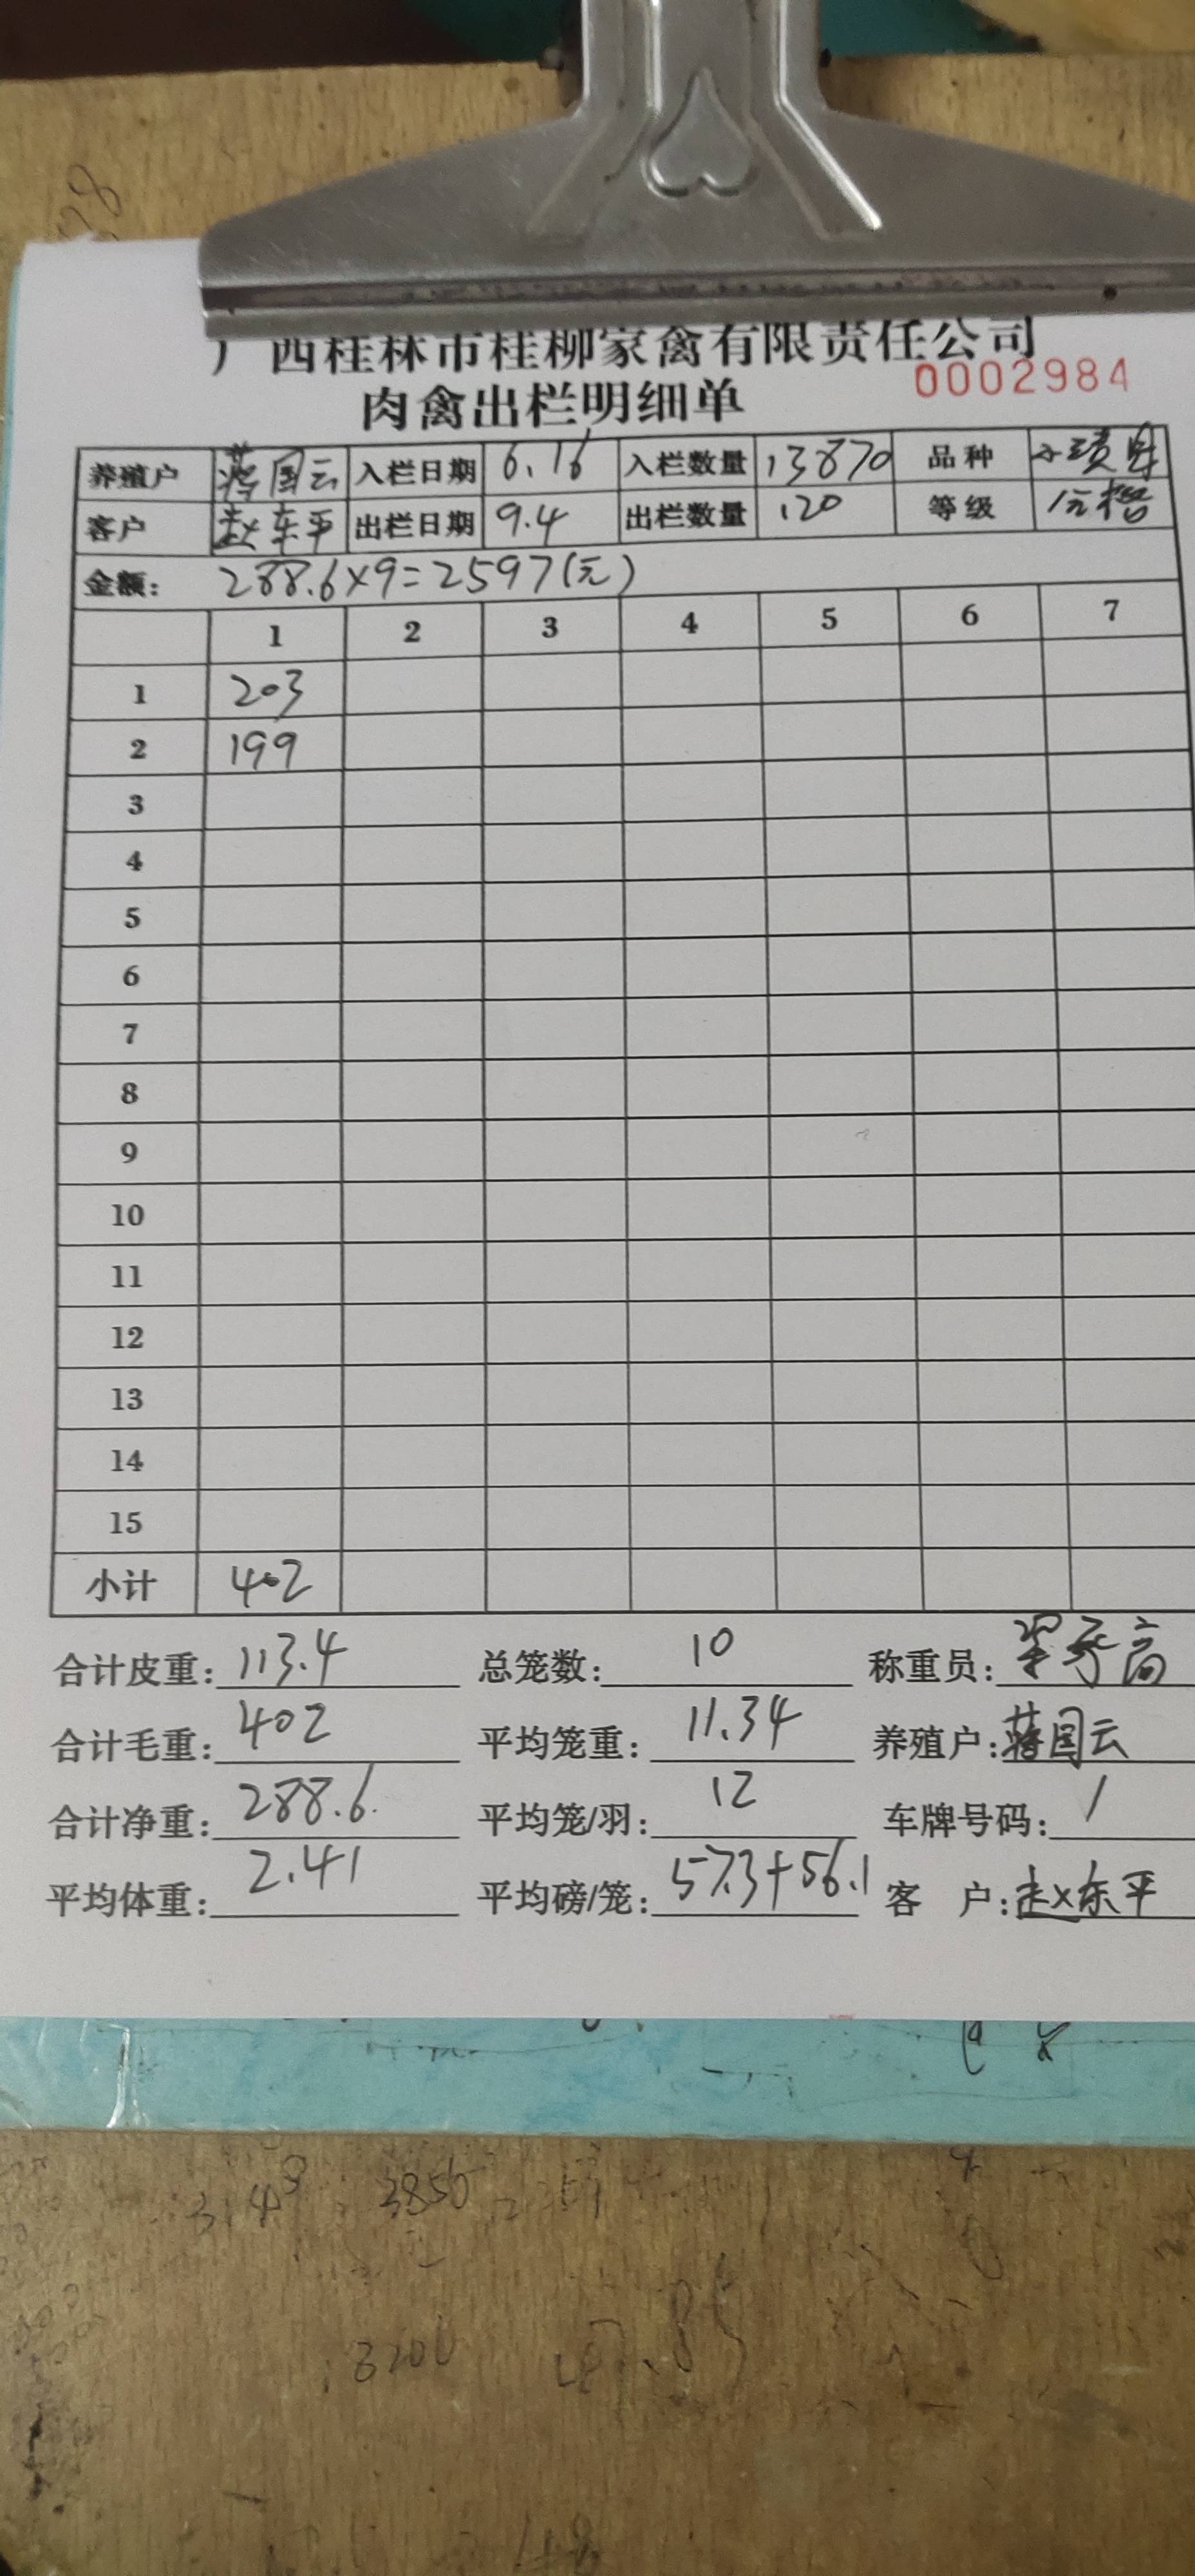 广西桂林市桂柳家禽有限责任公司
肉禽出栏明细单 0002984
养殖户 蒋国云 入栏日期 6.16 入栏数量 13870 品种
客户 赵东平 出栏日期 9.4 出栏数量 120 等级
金额: 288.6×9=2597(元)
1 2 3 4 5 6 7
1 203
2 199
3
4
5
6
7
8
9
10
11
12
13
14
15
小计 402
合计皮重: 113.4 总笼数: 10 称重员:
合计毛重: 402 平均笼重: 11.34 养殖户: 蒋国云
合计净重: 288.6 平均笼/羽: 12 车牌号码: /
平均体重: 2.41 平均磅/笼: 57.3+56.1 客 户: 赵东平
3850
3200